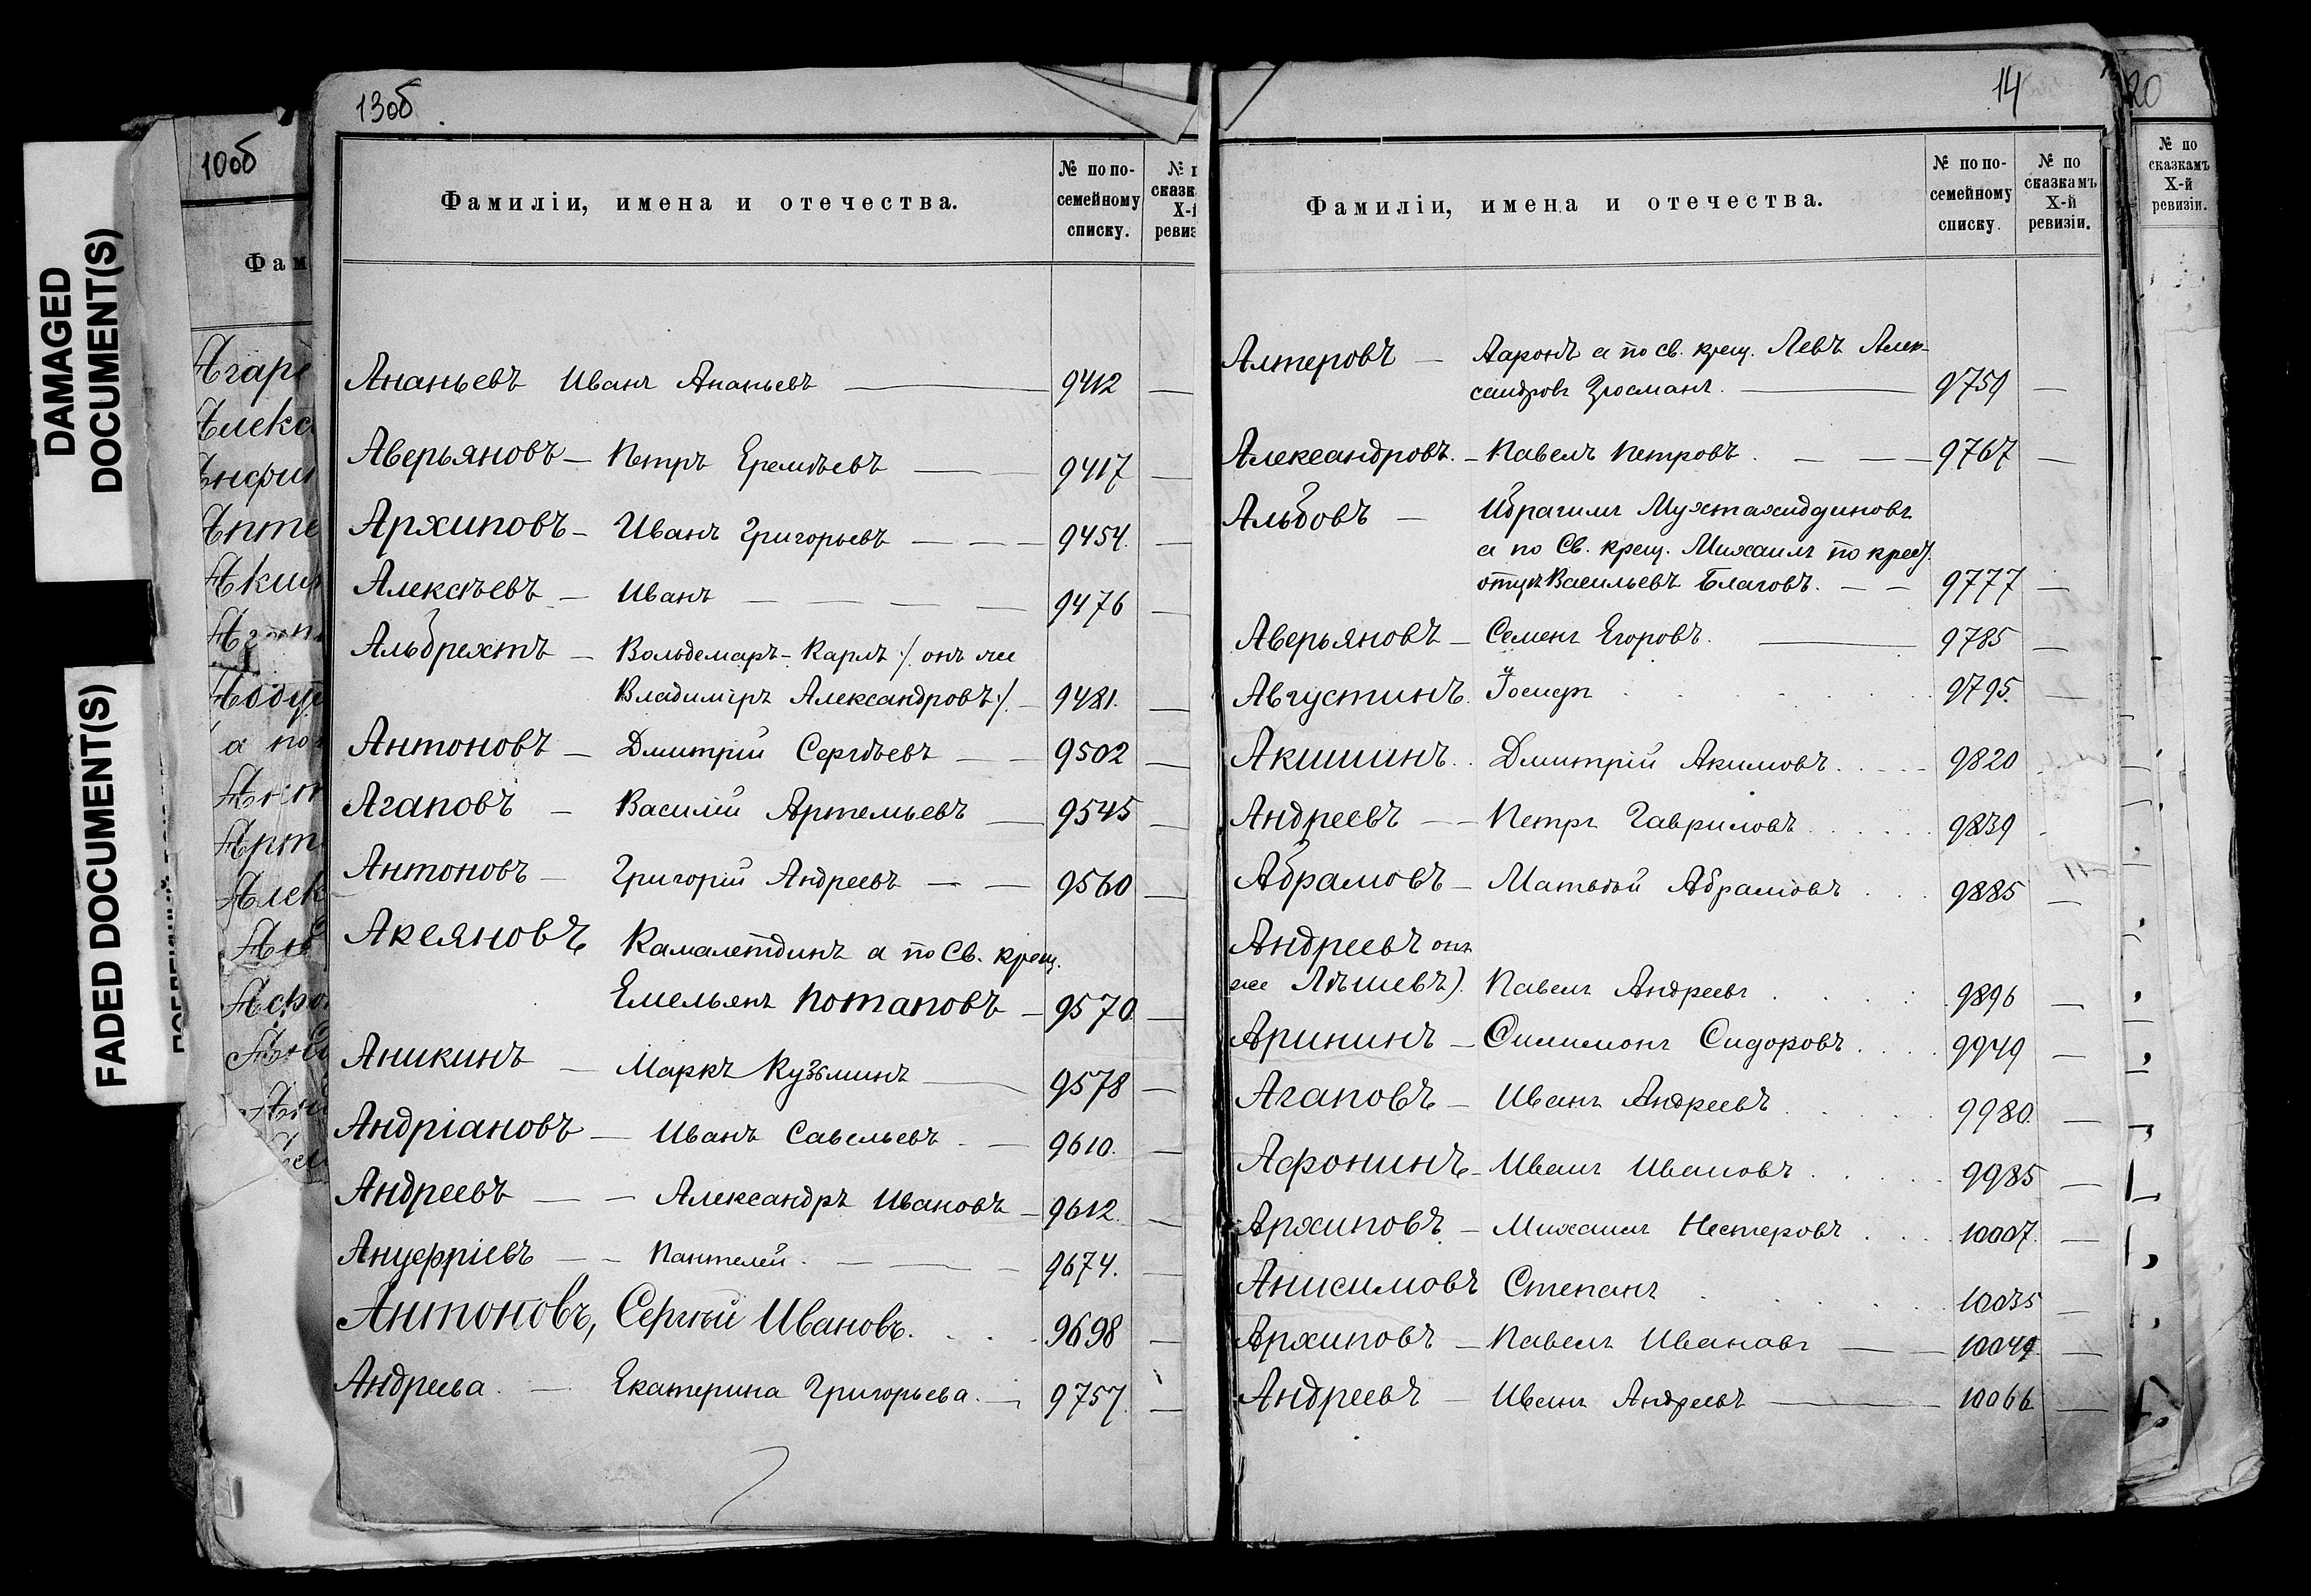 DAMAGED
DOCUMENT(S)
FADED DOCUMENT(S)
10об
Фам
13об
Фамиліи, имена и отечества.
№ по по-
семейному
списку.
Ананьевъ Иванъ Ананьевъ — 9412 —
Аверьяновъ — Петръ Еремѣевъ — 9417 —
Архиповъ — Иванъ Григорьевъ — — — 9454. —
Алексѣевъ — Иванъ — — — — 9476 —
Альбрехтъ — Вольдемаръ-Карлъ /: онъ же
Владиміръ Александровъ :/ — 9481. —
Антоновъ — Дмитрій Сергѣевъ — — 9502 —
Агаповъ — Василій Артемьевъ — 9545 —
Антоновъ — Григорій Андреевъ — — 9560 —
Аксяновъ Камалетдинъ а по Св. крещ.
Емельянъ Потаповъ — 9570 —
Аникинъ — Маркъ Кузьминъ — 9578 —
Андріановъ — Иванъ Савельевъ — 9610. —
Андреевъ — — Александръ Ивановъ — 9612. —
Ануфріевъ — — Пантелей. — — — 9674. —
Антоновъ, Сергѣй Ивановъ. 9698 —
Андреева — Екатерина Григорьева. — 9757. —
14
Фамиліи, имена и отечества.
№ по по-
семейному
списку.
№ по
сказкамъ
X-й
ревизіи.
Алтеровъ — Ааронъ а по св. крещ. Левъ Алек-
сандровъ Гросманъ. — 9759 —
Александровъ. — Павелъ Петровъ. — — — 9767 —
Альбовъ — Ибрагимъ
а по Св. крещ. Михаилъ по крест.
отцу Васильевъ Благовъ. — — 9777 —
Аверьяновъ — Семенъ Егоровъ. — 9785 —
Августинъ. Іосифъ 9795. —
Акишинъ. Дмитрій Акимовъ. 9820
Андреевъ — — Петръ Гавриловъ. 9839
Абрамовъ — Матвѣй Абрамовъ 9885 —
Андреевъ онъ
же Лѣшевъ). Павелъ Андреевъ 9896 —
Арининъ — Филимонъ Сидоровъ 9949 —
Агаповъ — Иванъ Андреевъ 9980. —
Афонинъ — Иванъ Ивановъ 9985 —
Архиповъ — Михаилъ Нестеровъ 10007. —
Анисимовъ Степанъ 10035 —
Архиповъ — Павелъ Ивановъ — — 10049. —
Андреевъ — Иванъ Андреевъ — 10066 —
20
№ по
сказкамъ
X-й
ревизіи.